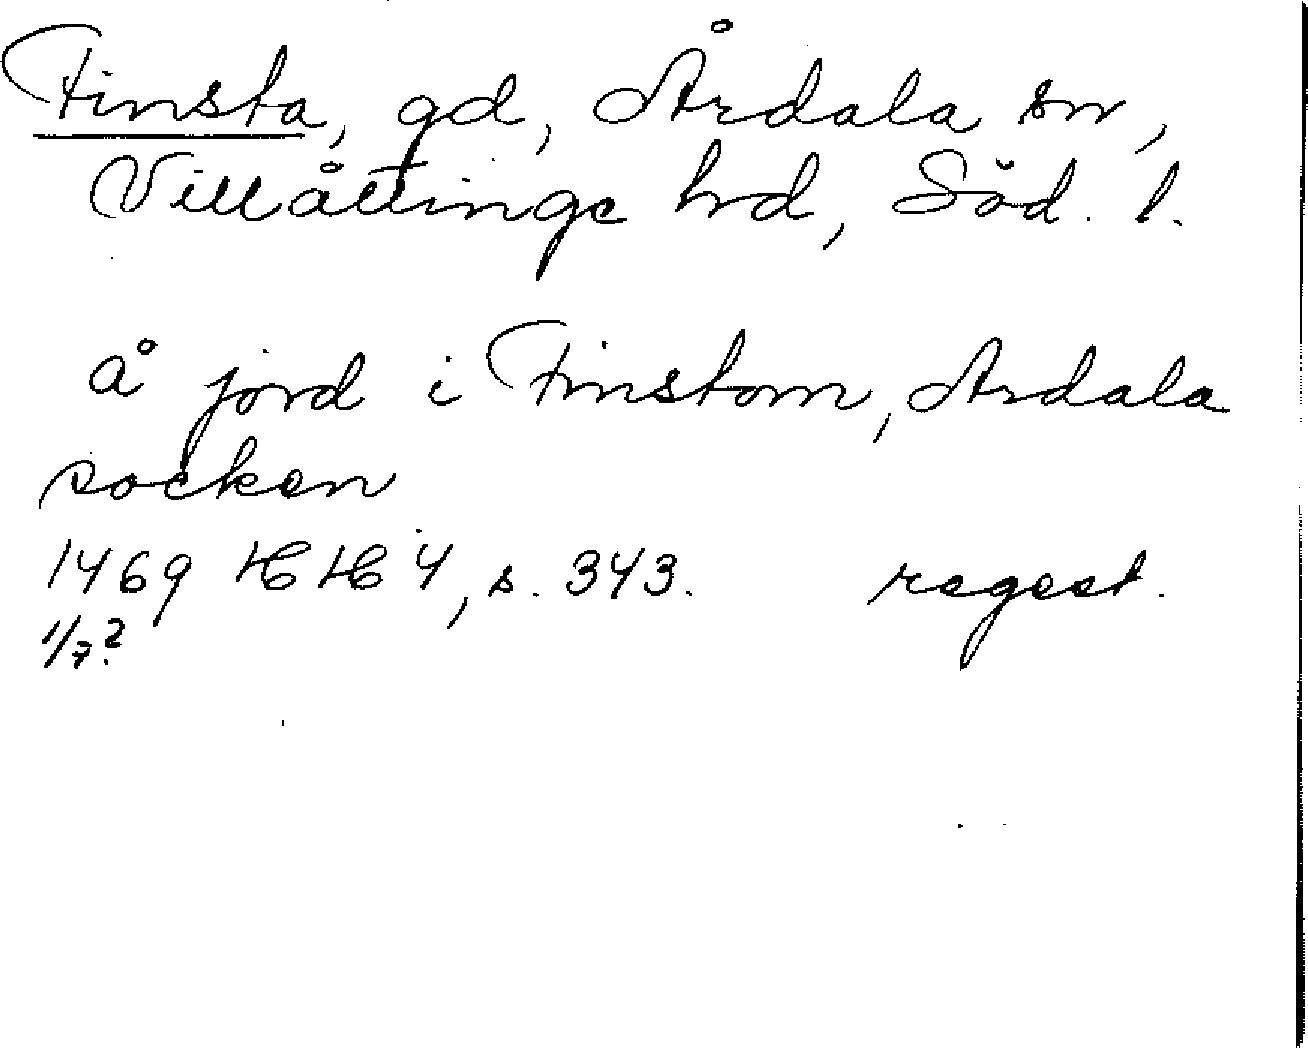 Finsta, gd, Årdala sn,
Villåttinge hrd, Söd. l.
å jord i Finstom, Ardala
socken
1469 HH 4, s. 343. regest.
1/7?